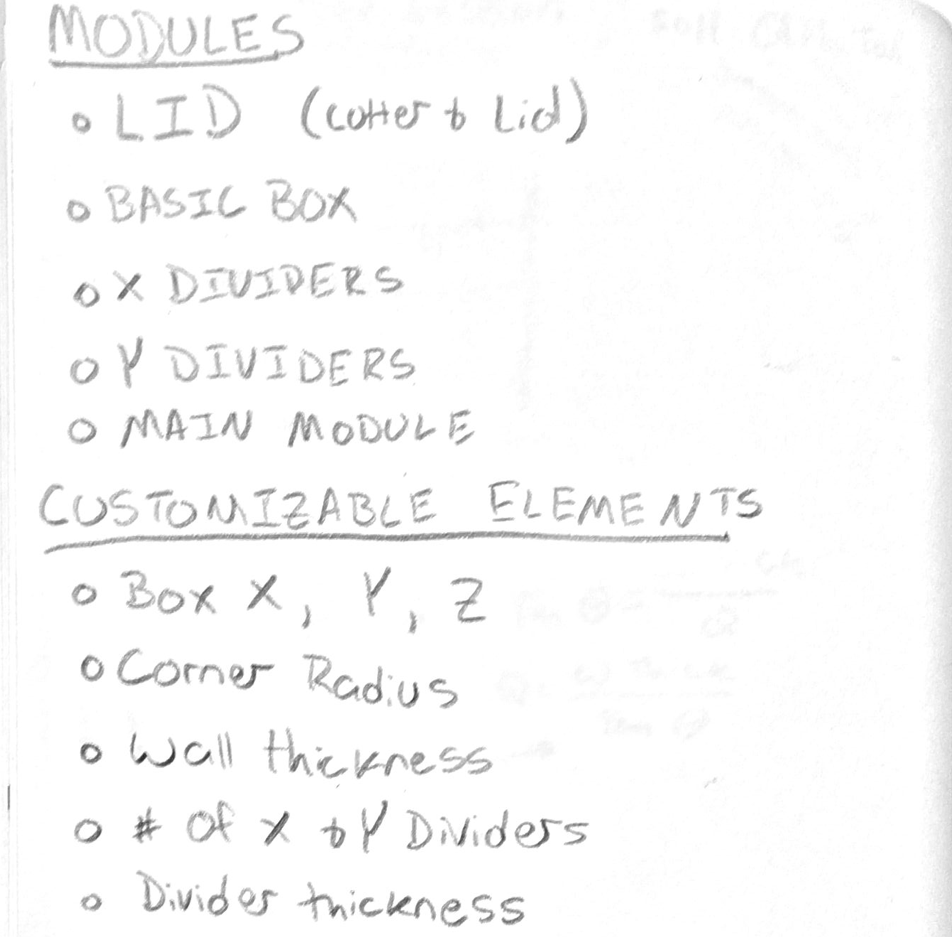 MODULES
o LID (cutter & Lid)
o BASIC BOX
o X DIVIDERS
o Y DIVIDERS
o MAIN MODULE
CUSTOMIZABLE ELEMENTS
o Box X, Y, Z
o Corner Radius
o Wall thickness
o # of X & Y Dividers
o Divider thickness